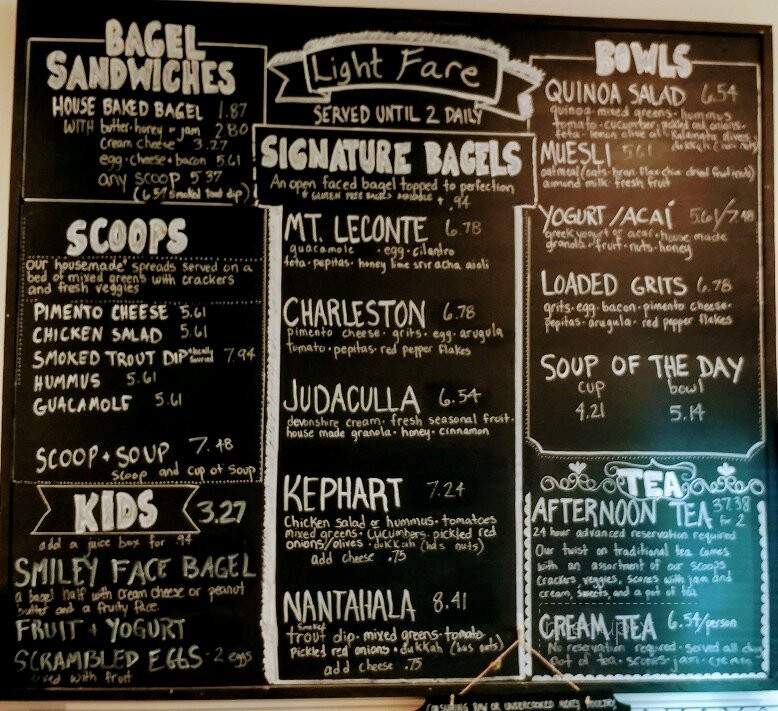 BAGEL
SANDWICHES
HOUSE BAKED BAGEL 1.87
WITH butter·honey or jam 2.80
cream cheese 3.27
egg·cheese·bacon 5.61
any scoop 5.37
(6.54 smoked trout dip)
SCOOPS
our housemade spreads served on a
bed of mixed greens with crackers
and fresh veggies
PIMENTO CHEESE 5.61
CHICKEN SALAD 5.61
SMOKED TROUT DIP 7.94
HUMMUS 5.61
GUACAMOLE 5.61
SCOOP + SOUP 7.48
Scoop and cup of Soup
KIDS 3.27
add a juice box for .94
SMILEY FACE BAGEL
a bagel half with cream cheese or peanut
butter and a fruity face
FRUIT + YOGURT
SCRAMBLED EGGS - 2 eggs
served with fruit
Light Fare
SERVED UNTIL 2 DAILY
SIGNATURE BAGELS
An open faced bagel topped to perfection
* GLUTEN FREE BAGELS AVAILABLE + .94
MT. LECONTE 6.78
guacamole · egg · cilantro
feta · pepitas · honey lime sriracha aioli
CHARLESTON 6.78
pimento cheese · grits · egg · arugula
tomato · pepitas · red pepper flakes
JUDACULLA 6.54
devonshire cream · fresh seasonal fruit ·
house made granola · honey · cinnamon
KEPHART 7.24
Chicken salad or hummus · tomatoes
mixed greens · cucumbers · pickled red
onions/olives · dukkah (has nuts)
add cheese .75
NANTAHALA 8.41
smoked
trout dip · mixed greens · tomato
pickled red onions · dukkah (has nuts)
add cheese .75
BOWLS
QUINOA SALAD 6.54
quinoa · mixed greens · hummus
tomato · cucumber · pickled red onions ·
feta · lemon olive oil · kalamata olives ·
dukkah (has nuts)
MUESLI 5.61
oatmeal (oats · bran · flax · chia · dried fruit · nuts)
almond milk · fresh fruit
YOGURT/ACAÍ 5.61/7.48
Greek yogurt or acaí · house made
granola · fruit · nuts · honey
LOADED GRITS 6.78
grits · egg · bacon · pimento cheese ·
pepitas · arugula · red pepper flakes
SOUP OF THE DAY
cup bowl
4.21 5.14
TEA
AFTERNOON TEA 37.38
for 2
24 hour advanced reservation required
Our twist on traditional tea comes
with an assortment of our scoops
crackers, veggies, scones with jam and
cream, sweets, and a pot of tea
CREAM TEA 6.54/person
No reservation required · served all day
Pot of tea · scones · jam · cream
CONSUMING RAW OR UNDERCOOKED MEATS, POULTRY